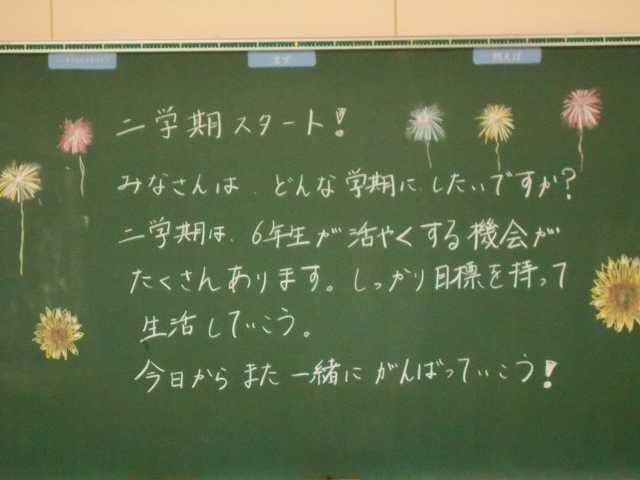 まず
例えば
二学期スタート!
みなさんは、どんな学期にしたいですか?
二学期は、6年生が活やくする機会が
たくさんあります。しっかり目標を持って
生活していこう。
今日からまた一緒にがんばっていこう!